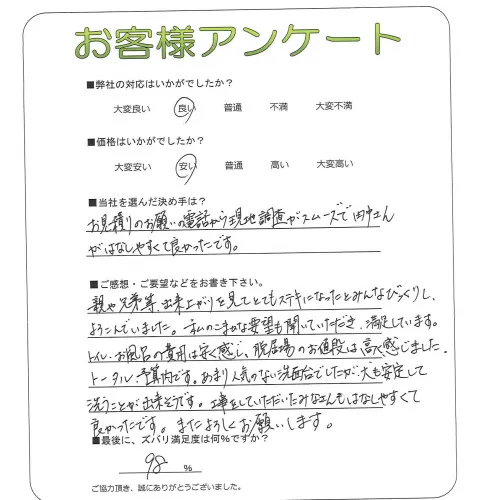 お客様アンケート
■弊社の対応はいかがでしたか？
大変良い 良い 普通 不満 大変不満
■価格はいかがでしたか？
大変安い 安い 普通 高い 大変高い
■当社を選んだ決め手は？
お見積りのお願いの電話から現地調査がスムーズで田中さん
がはなしやすくて良かったです。
■ご感想・ご要望などをお書き下さい。
親や兄弟等、出来上がりを見てとてもステキになったとみんなびっくりし、
よろこんでいました。私のこまかな要望も聞いていただき、満足しています。
トイレ、お風呂の費用は安く感じ、脱居場のお値段は高く感じました。
トータル、予算内です。あまり人気のない洗面台でしたが、犬も安定して
洗うことが出来そうです。工事をしていただいたみなさんもはなしやすくて
良かったです。またよろしくお願いします。
■最後に、ズバリ満足度は何％ですか？
98 %
ご協力頂き、誠にありがとうございました。